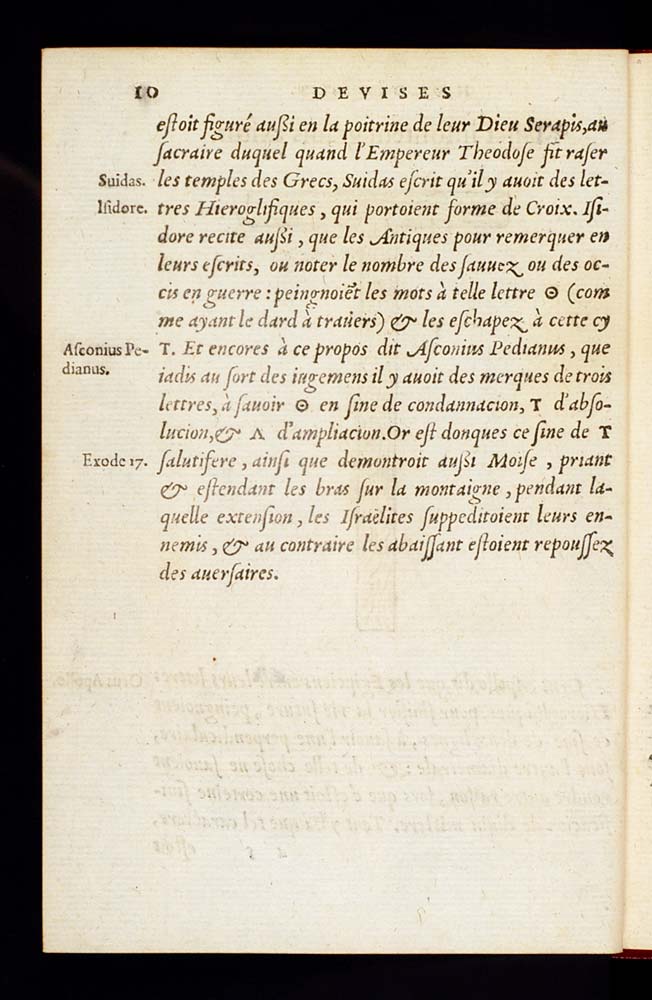 10 DEVISES
estoit figuré außi en la poitrine de leur Dieu Serapis, au
sacraire duquel quand l'Empereur Theodose fit raser
Suidas. les temples des Grecs, Suidas escrit qu'il y auoit des let-
Isidore. tres Hieroglifiques, qui portoient forme de Croix. Isi-
dore recite außi, que les Antiques pour remerquer en
leurs escrits, ou noter le nombre des sauuez ou des oc-
cis en guerre: peingnoiẽt les mots à telle lettre Θ (com
me ayant le dard à trauers) & les eschapez à cette cy
Asconius Pe- T. Et encores à ce propos dit Asconius Pedianus, que
dianus. iadis au sort des iugemens il y auoit des merques de trois
lettres, à sauoir Θ en sine de condannacion, T d'abso-
lucion, & Λ d'ampliacion. Or est donques ce sine de T
Exode 17. salutifere, ainsi que demontroit außi Moïse, priant
& estendant les bras sur la montaigne, pendant la-
quelle extension, les Israëlites suppeditoient leurs en-
nemis, & au contraire les abaissant estoient repoussez
des auersaires.